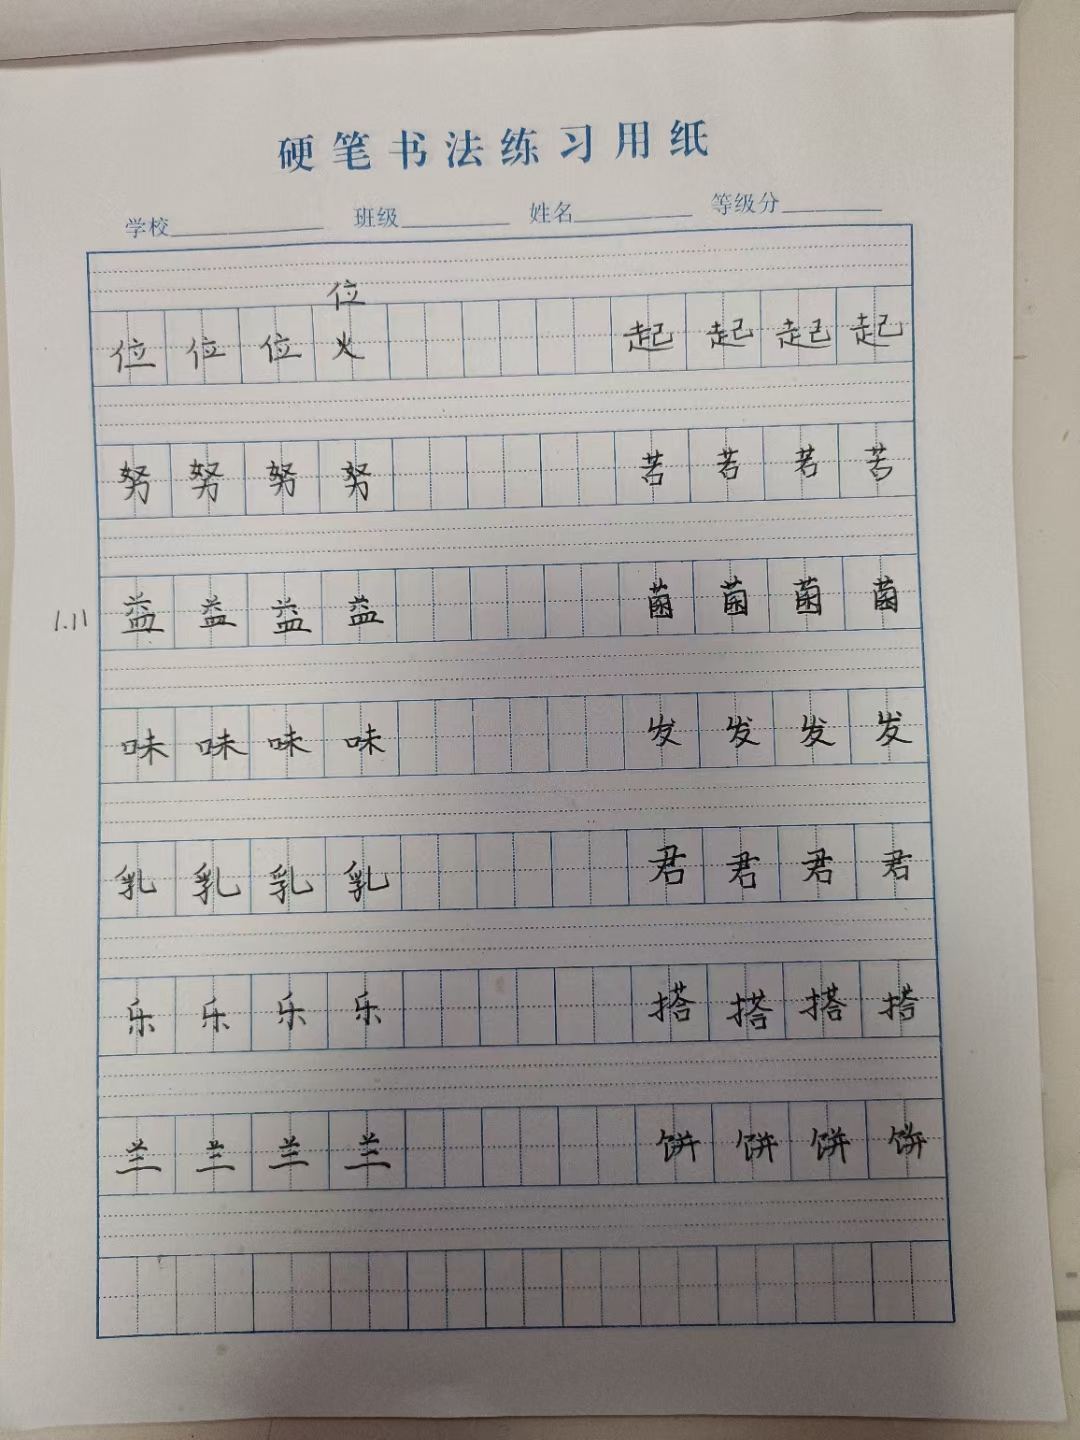 硬笔书法练习用纸
学校 班级 姓名 等级分
位
位 位 位 火 起 起 起 起
努 努 努 努 苦 苦 苦 苦
1.11 益 益 益 益 菌 菌 菌 菌
味 味 味 味 发 发 发 发
乳 乳 乳 乳 君 君 君 君
乐 乐 乐 乐 搭 搭 搭 搭
兰 兰 兰 兰 饼 饼 饼 饼